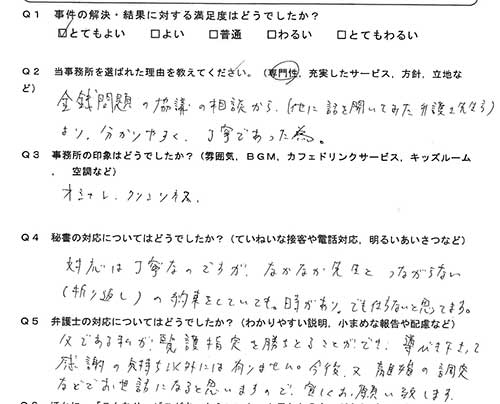 Q1 事件の解決・結果に対する満足度はどうでしたか？
☑とてもよい □よい □普通 □わるい □とてもわるい
Q2 当事務所を選ばれた理由を教えてください。（専門性，充実したサービス，方針，立地な
ど）
金銭問題の協議の相談から、(他に話を聞いてみた弁護士先生ら)
より、分かりやすく、丁寧であった為。
Q3 事務所の印象はどうでしたか？（雰囲気，BGM，カフェドリンクサービス，キッズルーム
， 空調など）
オシャレ、
Q4 秘書の対応についてはどうでしたか？（ていねいな接客や電話対応，明るいあいさつなど）
対応は丁寧なのですが、なかなか先生とつながらない
(折り返し)の約束をしていても。時があり。でも仕方ないと思ってます。
Q5 弁護士の対応についてはどうでしたか？（わかりやすい説明，小まめな報告や配慮など）
父である私が、監護指定を勝ちとることができ、導びき下さって
感謝の気持ち以外には有りません。今後、又離婚の調突
などでお世話になると思いますので、宜しくお願い致します。